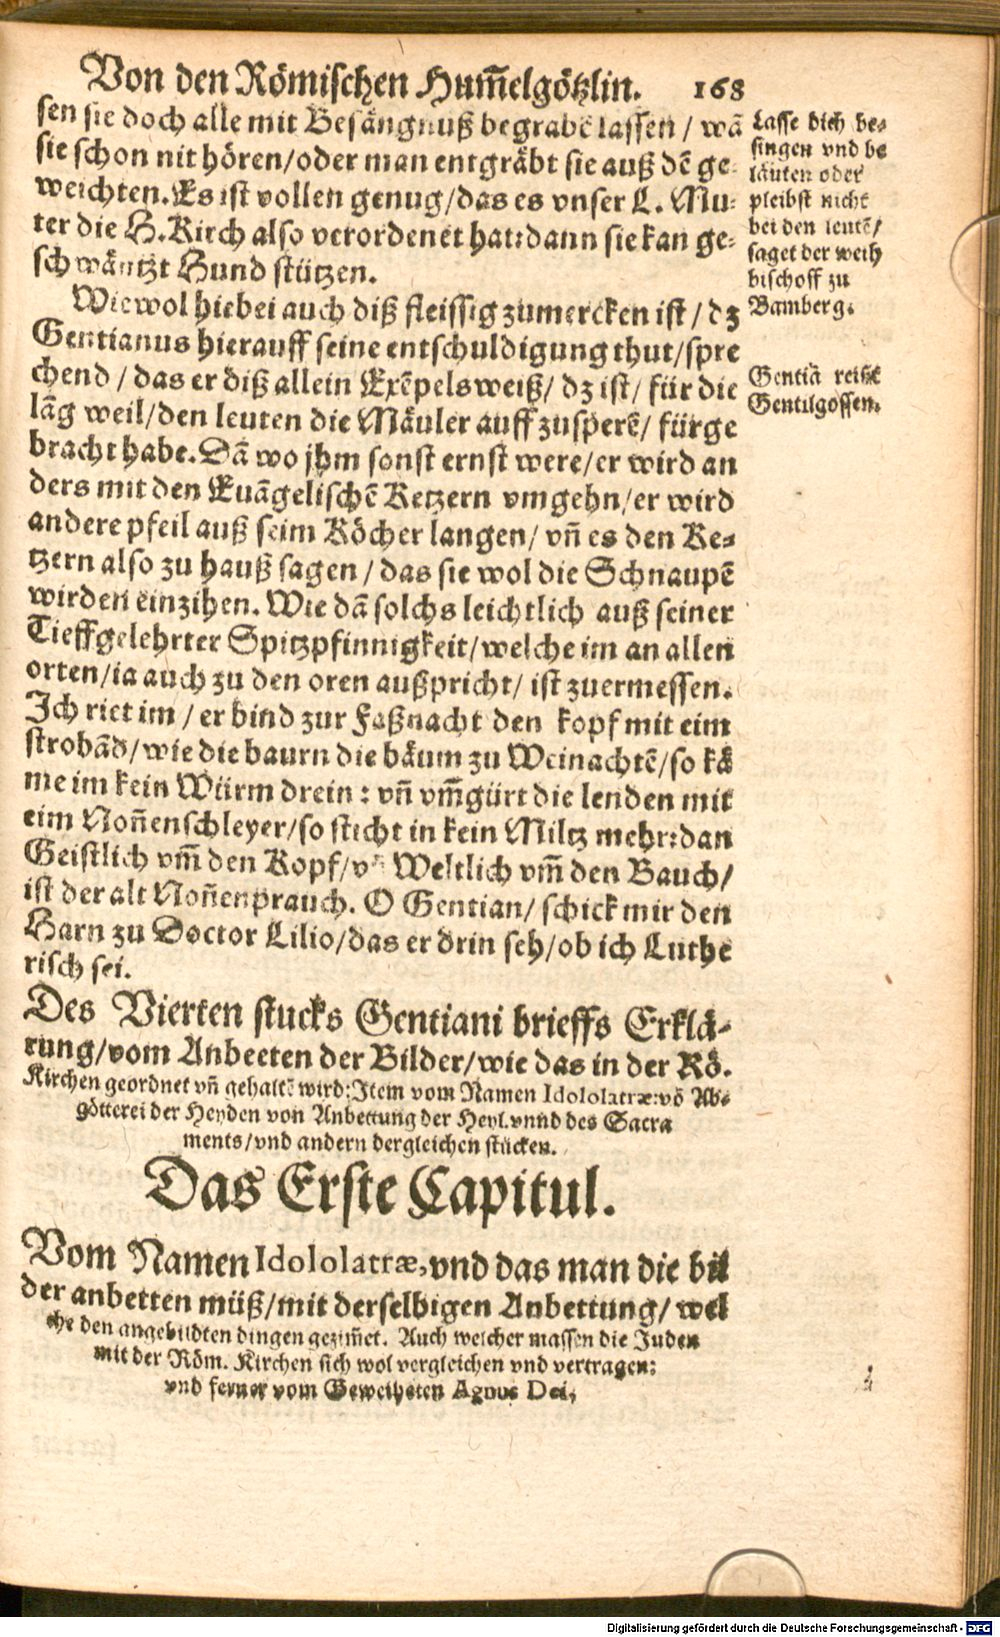 Von den Römischen Hum̃elgötzlin. 168
sen sie doch alle mit Besängnuß begrabẽ lassen / wã
sie schon nit hören/oder man entgräbt sie auß dẽ ge-
weichten. Es ist vollen genug/das es vnser L. Mu-
ter die H. Kirch also verordenet hat: dann sie kan ge-
schwäntzt Hund stützen.
Wiewol hiebei auch diß fleissig zumercken ist / dz
Gentianus hierauff seine entschuldigung thut/spre
chend / das er diß allein Exẽpelsweiß/ dz ist/ für die
lãg weil/den leuten die Mäuler auff zusperẽ/ fürge
bracht habe. Dã wo jhm sonst ernst were/er wird an
ders mit den Euãgelischẽ Ketzern vmgehn/er wird
andere pfeil auß seim Köcher langen/ vñ es den Ke-
tzern also zu hauß sagen / das sie wol die Schnaupẽ
wirden einzihen. Wie dã solchs leichtlich auß seiner
Tieffgelehrter Spitzpfinnigkeit/welche im an allen
orten/ia auch zu den oren außpricht/ ist zuermessen.
Ich riet im / er bind zur Faßnacht den kopf mit eim
strobãd/wie die baurn die bäum zu Weinachtẽ/so kä
me im kein Würm drein: vñ vm̃gürt die lenden mit
eim Noñenschleyer/so sticht in kein Miltz mehr: dan
Geistlich vm̃ den Kopf/vñ Weltlich vm̃ den Bauch/
ist der alt Noñenprauch. O Gentian/ schick mir den
Harn zu Doctor Lilio/das er drin seh/ob ich Luthe
risch sei.
Lasse dich be-
singen vnd be
läuten oder
pleibst nicht
bei den leutẽ/
saget der weih
bischoff zu
Bamberg.
Gentiã reißt
Gentilgossen.
Des Vierten stucks Gentiani brieffs Erklä-
rung/vom Anbeeten der Bilder/wie das in der Rö.
Kirchen geordnet vñ gehaltẽ wird: Item vom Namen Idololatræ: võ Ab-
götterei der Heyden von Anbettung der Heyl. vnnd des Sacra
ments/vnd andern dergleichen stücken.
Das Erste Capitul.
Vom Namen Idololatræ, vnd das man die bil
der anbetten müß/mit derselbigen Anbettung/ wel
che den angebildten dingen gezim̃et. Auch welcher massen die Juden
mit der Röm. Kirchen sich wol vergleichen vnd vertragen:
vnd ferner vom Geweiheten Agnus Dei,
Digitalisierung gefördert durch die Deutsche Forschungsgemeinschaft - DFG